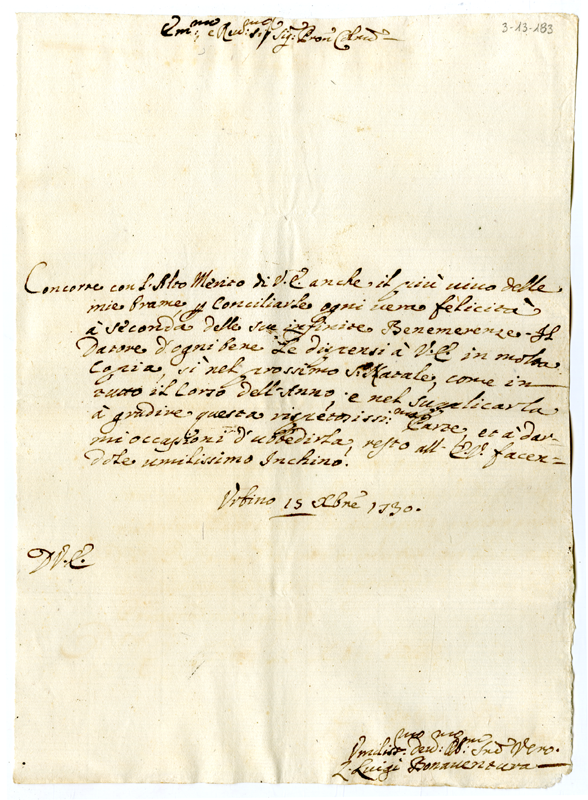 3-13-183
Em:mo e Rev:mo Sig:r Sig:r Pron Col:mo
Concorre con l'Alto Merito di V.E. anche il più vivo delle
mie brame p conciliarle ogni vera felicità
à seconda delle sue infinite Benemerenze. Il
Datore d'ogni bene Le dispensi à V.E. in molta
Copia, sì nel prossimo S. Natale, come in
tutto il Corso dell'Anno e nel supplicarla
à gradire questa rispettosissi:ma Carte, et à dar-
mi occasioni d'ubbedirla, resto all' E.V. facen-
dole umilissimo Inchino.
Urbino 15 Xbre 1730.
D V.E.
Umilis:mo dev:mo Obl:mo Ser Vero.
Luigi Bonaventura